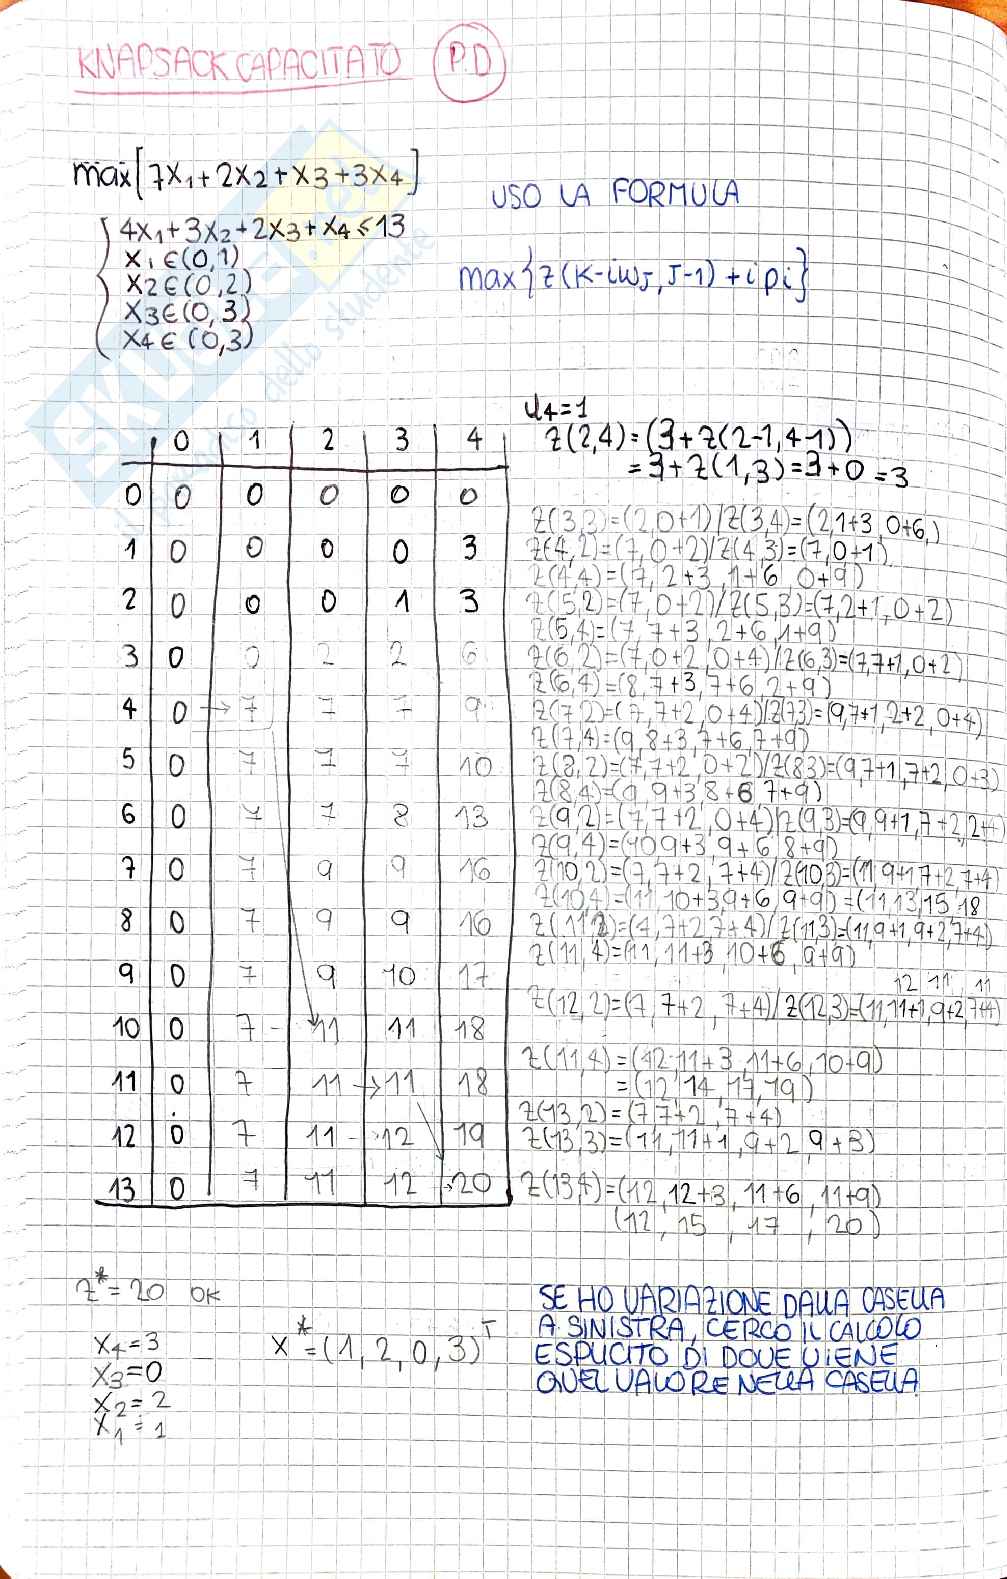 KNAPSACK CAPACITATO P.D
max[7x1+2x2+x3+3x4]
4x1+3x2+2x3+x4≤13
x1∈(0,1)
x2∈(0,2)
x3∈(0,3)
x4∈(0,3)
USO LA FORMULA
max{z(K-iwJ, J-1)+ipi}
0 1 2 3 4
0 0 0 0 0 0
1 0 0 0 0 3
2 0 0 0 1 3
3 0 0 2 2 6
4 0 → 7 7 7 9
5 0 7 7 7 10
6 0 7 7 8 13
7 0 7 9 9 16
8 0 7 9 9 16
9 0 7 9 10 17
10 0 7 - 11 11 18
11 0 7 11 → 11 18
12 0 7 11 - 12 19
13 0 7 11 12 20
u4=1
z(2,4)=(3+z(2-1,4-1))
=3+z(1,3)=3+0=3
z(3,3)=(2,0+1)/z(3,4)=(2,1+3,0+6,)
z(4,2)=(7,0+2)/z(4,3)=(7,0+1)
z(4,4)=(7,2+3,1+6,0+9)
z(5,2)=(7,0+2)/z(5,3)=(7,2+1,0+2)
z(5,4)=(7,7+3,2+6,1+9)
z(6,2)=(7,0+2,0+4)/z(6,3)=(7,7+1,0+2)
z(6,4)=(8,7+3,7+6,2+9)
z(7,2)=(7,7+2,0+4)/z(7,3)=(9,7+1,2+2,0+4)
z(7,4)=(9,8+3,7+6,7+9)
z(8,2)=(7,7+2,0+2)/z(8,3)=(9,7+1,7+2,0+3)
z(8,4)=(9,9+3,8+6,7+9)
z(9,2)=(7,7+2,0+4)/z(9,3)=(9,9+1,7+2,2+
z(9,4)=(10,9+3,9+6,8+9)
z(10,2)=(7,7+2,7+4)/z(10,3)=(11,9+1,7+2,7+4)
z(10,4)=(11,10+3,9+6,9+9)=(11,13,15,18
z(11,2)=(7,7+2,7+4)/z(11,3)=(11,9+1,9+2,7+4)
z(11,4)=(11,11+3,10+6,9+9)
12 11 11
z(12,2)=(7,7+2,7+4)/z(12,3)=(11,11+1,9+2,7+4)
z(11,4)=(12,11+3,11+6,10+9)
=(12,14,17,19)
z(13,2)=(7,7+2,7+4)
z(13,3)=(11,11+1,9+2,9+3)
z(13,4)=(12,12+3,11+6,11+9)
(12,15,17,20)
z*=20 OK
x4=3
x3=0
x2=2
x1=1
x*=(1,2,0,3)T
SE HO VARIAZIONE DALLA CASELLA
A SINISTRA, CERCO IL CALCOLO
ESPLICITO DI DOVE VIENE
QUEL VALORE NELLA CASELLA